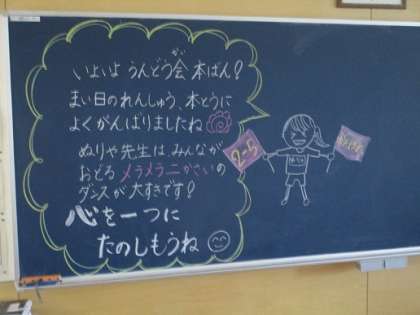 いよいよ うんどう会 本ばん!
が
まい日のれんしゅう、本とうに
よくがんばりましたね
ぬりや先生は みんなが
おどる メラメラニかいの
ダンスが 大すきです!
心を一つに
たのしもうね
2-5